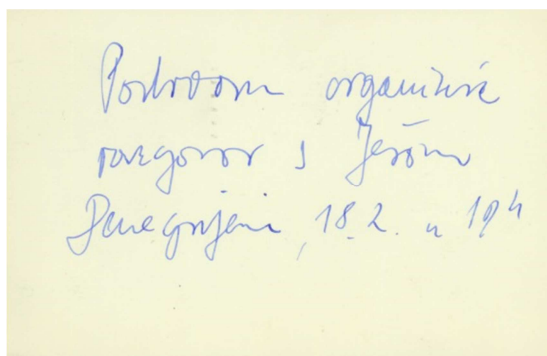 Podroom organizira
razgovor s Ješom
Denegrijem, 18.2. u 19h